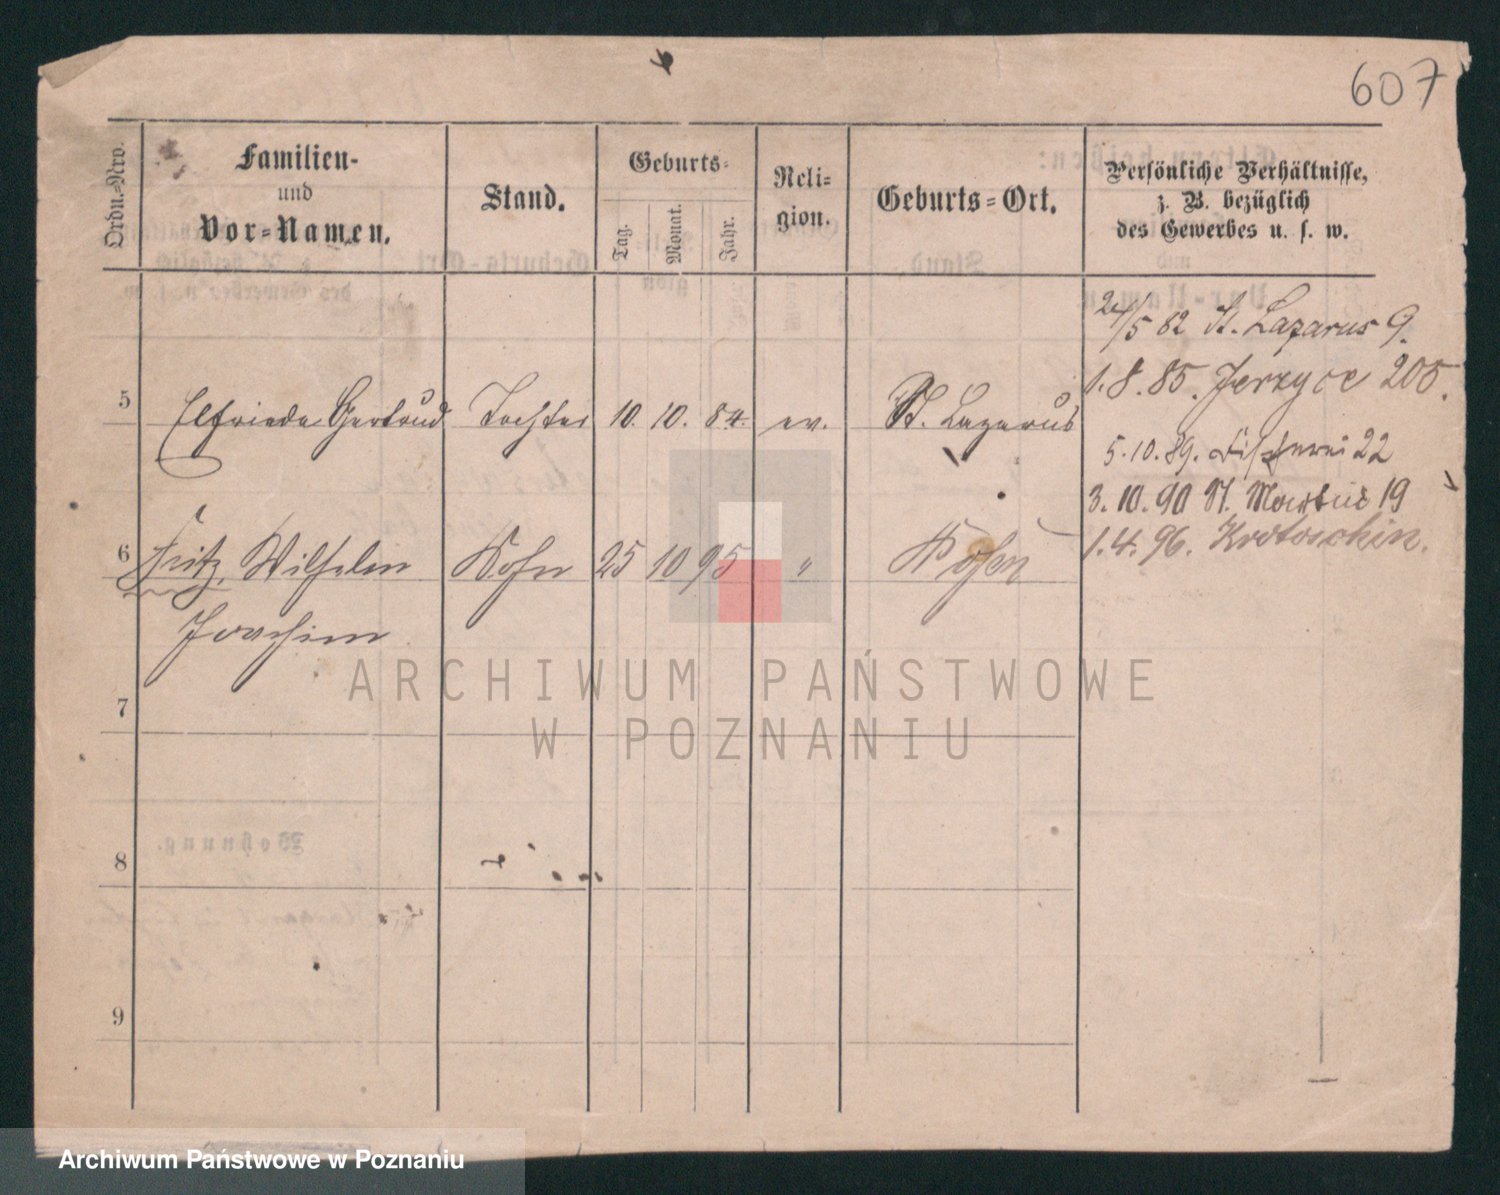 607
Ordn.-Nro.
Familien-
und
Vor-Namen.
Stand.
Geburts-
Tag.
Monat.
Jahr.
Reli-
gion.
Geburts-Ort.
Persönliche Verhältnisse,
z. B. bezüglich
des Gewerbes u. s. w.
24/5 82 St. Lazarus 9.
1.8.85. Jerzyce 205.
5 Elfriede Gertrud Tochter 10. 10. 84. ev. St. Lazarus
5.10.89. Fischerei 22
3.10.90 St. Martin 19
1.4.96. Krotoschin.
6 Fritz, Wilhelm Sohn 25 10 95 " Posen
Joachim
7
8
9
Wohnung.
ARCHIWUM PAŃSTWOWE
W POZNANIU
Archiwum Państwowe w Poznaniu